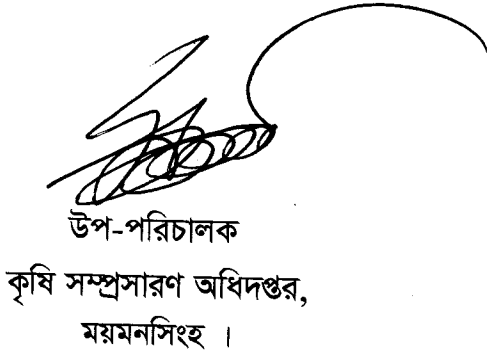 উপ-পরিচালক
কৃষি সম্প্রসারণ অধিদপ্তর,
ময়মনসিংহ ।